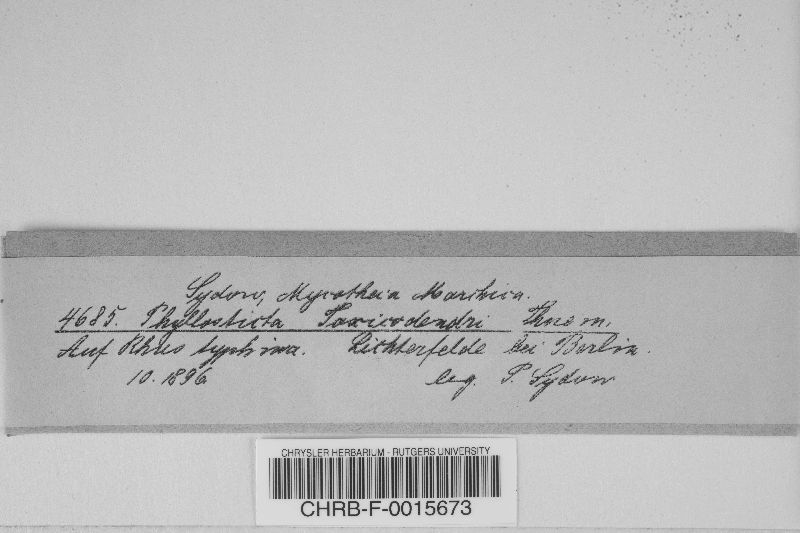 Sydow, Mycotheca Marchica.
4685. Phyllosticta Toxicodendri Thuem.
Auf Rhus typhina. Lichterfelde bei Berlin.
10. 1896 leg. P. Sydow
CHRYSLER HERBARIUM - RUTGERS UNIVERSITY
CHRB-F-0015673